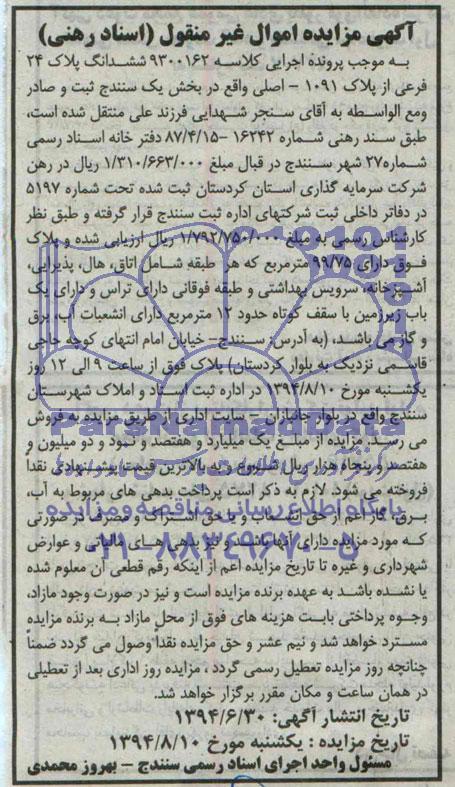 آگهی مزایده اموال غیر منقول (اسناد رهنی)
به موجب پرونده اجرایی کلاسه ۹۳۰۰۱۶۲ ششدانگ پلاک ۲۴
فرعی از پلاک ۱۰۹۱ - اصلی واقع در بخش یک سنندج ثبت و صادر
ومع الواسطه به آقای سنجر شهدایی فرزند علی منتقل شده است،
طبق سند رهنی شماره ۱۶۲۴۲ -۸۷/۴/۱۵ دفتر خانه اسناد رسمی
شماره۲۷ شهر سنندج در قبال مبلغ ۱/۳۱۰/۶۶۳/۰۰۰ ریال در رهن
شرکت سرمایه گذاری استان کردستان ثبت شده تحت شماره ۵۱۹۷
در دفاتر داخلی ثبت شرکتهای اداره ثبت سنندج قرار گرفته و طبق نظر
کارشناس رسمی به مبلغ ۱/۷۹۲/۷۵۰/۰۰۰ ریال ارزیابی شده و پلاک
فوق دارای ۹۹/۷۵ مترمربع که هر طبقه شامل اتاق، هال، پذیرایی،
آشپزخانه، سرویس بهداشتی و طبقه فوقانی دارای تراس و دارای یک
باب زیرزمین با سقف کوتاه حدود ۱۲ مترمربع دارای انشعبات آب، برق
و گاز می باشد، (به آدرس: سنندج- خیابان امام انتهای کوچه حاجی
قاسمی نزدیک به بلوار کردستان) پلاک فوق از ساعت ۹ الی ۱۲ روز
یکشنبه مورخ ۱۳۹۴/۸/۱۰ در اداره ثبت اسناد و املاک شهرستان
سنندج واقع در بلوار جانبازان - سایت اداری از طریق مزایده به فروش
می رسد. مزایده از مبلغ یک میلیارد و هفتصد و نود و دو میلیون و
هفتصد و پنجاه هزار ریال شروع و به بالاترین قیمت پیشنهادی نقداً
فروخته می شود. لازم به ذکر است پرداخت بدهی های مربوط به آب،
برق، گاز اعم از حق انشعاب و یا حق اشتراک و مصرف در صورتی
که مورد مزایده دارای آنها باشد و نیز بدهی های مالیاتی و عوارض
شهرداری و غیره تا تاریخ مزایده اعم از اینکه رقم قطعی آن معلوم شده
یا نشده باشد به عهده برنده مزایده است و نیز در صورت وجود مازاد،
وجوه پرداختی بابت هزینه های فوق از محل مازاد به برنده مزایده
مسترد خواهد شد و نیم عشر و حق مزایده نقداً وصول می گردد ضمناً
چنانچه روز مزایده تعطیل رسمی گردد، مزایده روز اداری بعد از تعطیلی
در همان ساعت و مکان مقرر برگزار خواهد شد.
تاریخ انتشار آگهی: ۱۳۹۴/۶/۳۰
تاریخ مزایده : یکشنبه مورخ ۱۳۹۴/۸/۱۰
مسئول واحد اجرای اسناد رسمی سنندج - بهروز محمدی
ParsNamadData
پایگاه اطلاع رسانی مناقصه و مزایده
۰۲۱-۸۸۳۴۹۶۷۰-۵